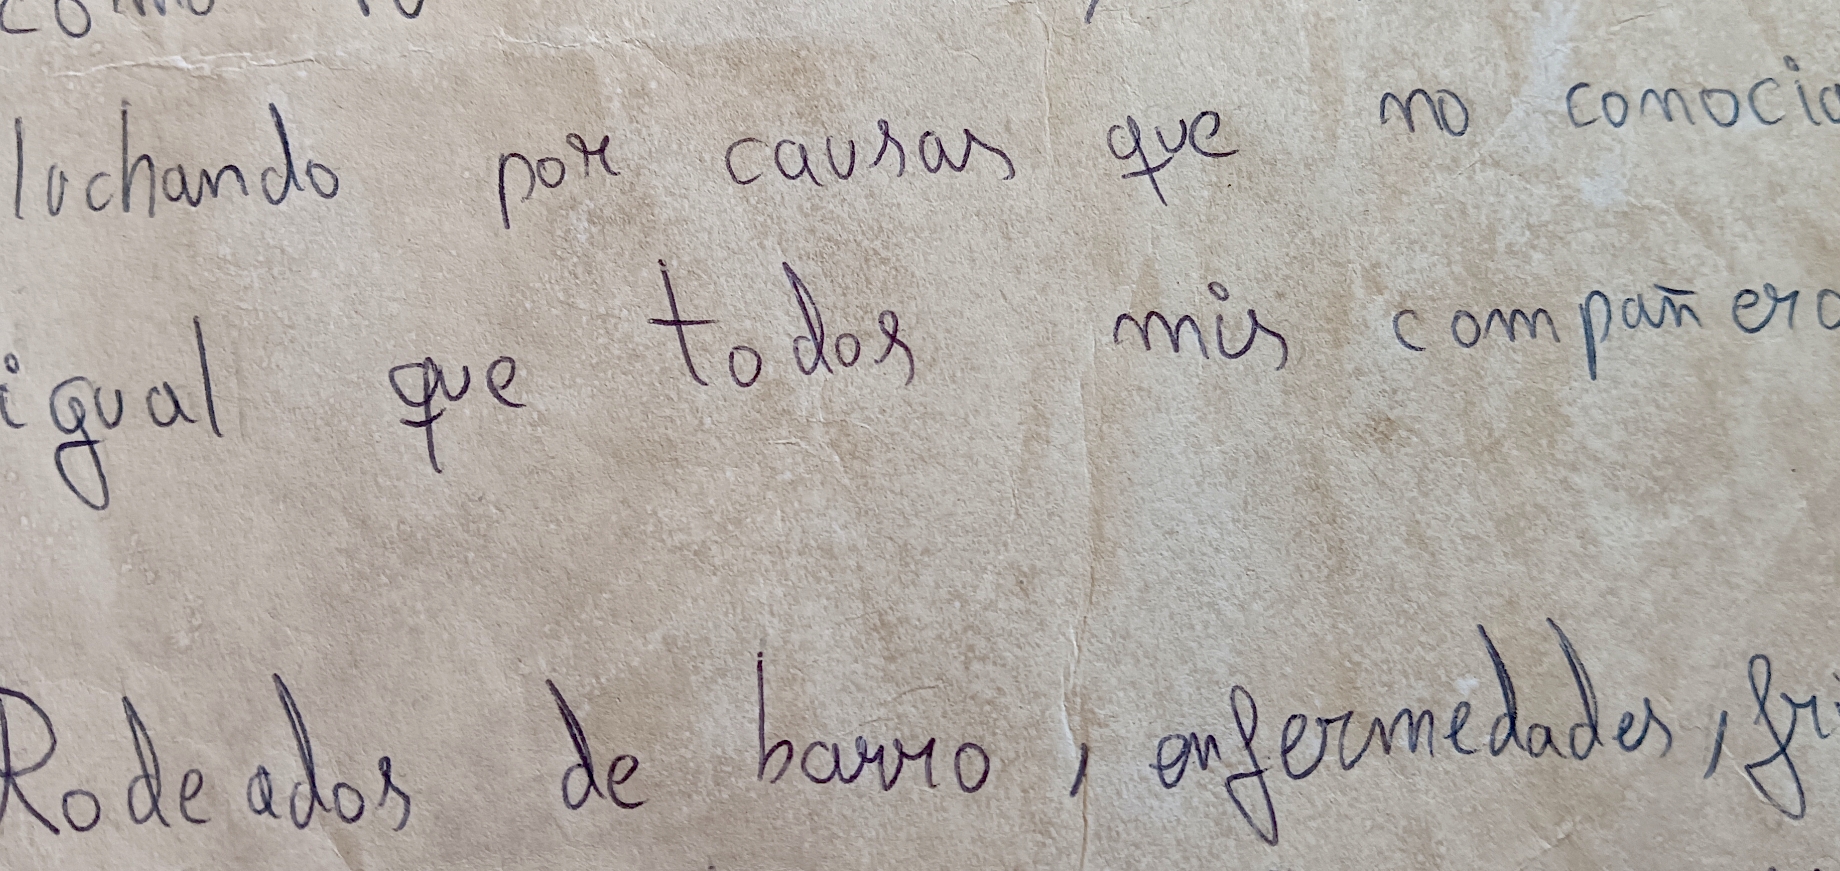 como
luchando por causas que no conocia
igual que todos mis compañero
Rodeados de barro, enfermedades, fri